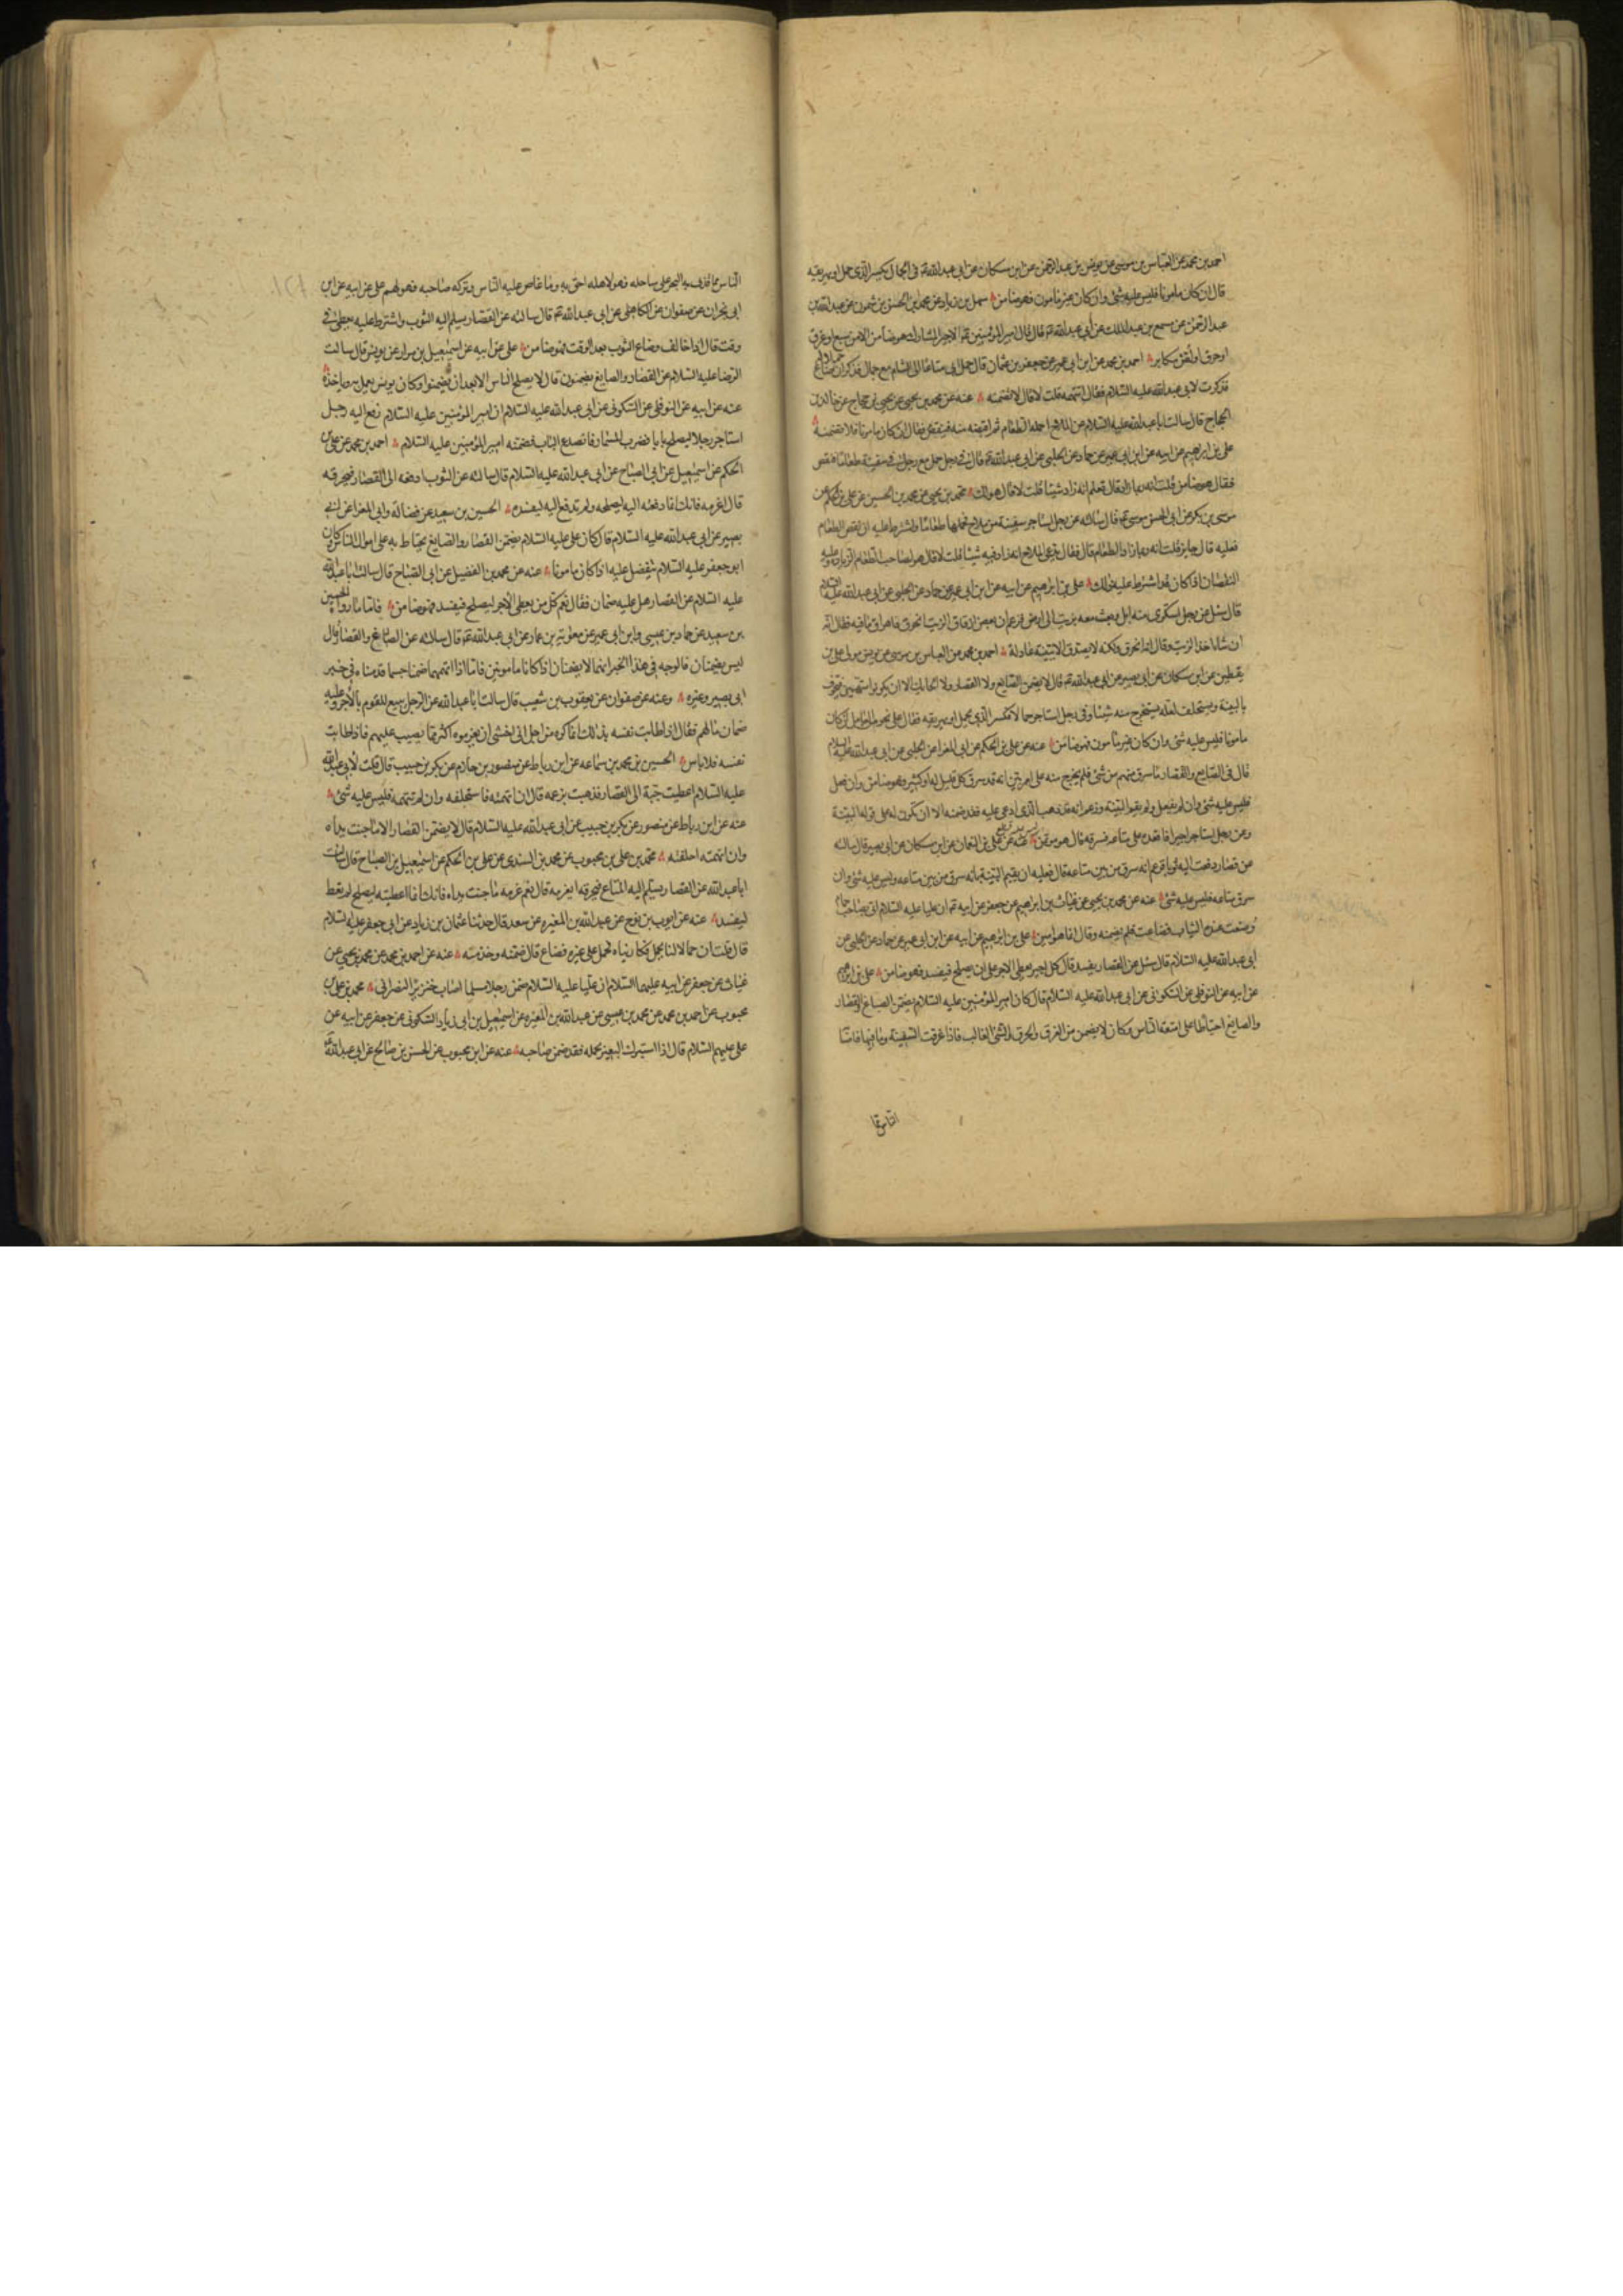 احمد بن محمد عن العباس بن موسى عن يونس بن عبد الرحمن عن ابن مسكان عن ابى عبد الله ع فى الجمال يكسر الذى حمل او يهريقه
قال ان كان مامونا فليس عليه شئ وان كان غير مامون فهو ضامن سهل بن زياد عن محمد بن الحسن بن شمون عن عبد الله بن
عبد الرحمن عن مسمع بن عبد الملك عن أبى عبد الله ع قال قال امير المؤمنين ع الاجير المشارك هو ضامن الا من سبع او غرق
او حرق او لص مكابر احمد بن محمد عن ابن ابى عمير عن جعفر بن عثمان قال حمل ابى متاعا الى الشام مع جمال فذكر ان حملا منه ضاع
فذكرت لابى عبد الله عليه السلام فقال اتتهمه قلت لا قال لا تضمنه عنه عن محمد بن يحيى عن يحيى بن حجاج عن خالد بن
الحجاج قال سالت ابا عبد الله عليه السلام عن الملاح احمله الطعام ثم اقبضه منه فينقص فقال ان كان مامونا فلا تضمنه
على بن ابراهيم عن ابيه عن ابن ابى عمير عن حماد عن الحلبى عن ابى عبد الله ع قال فى رجل حمل مع رجل فى سفينة طعاما فنقص
فقال هو ضامن قلت انه ربما زاد قال تعلم انه زاد شيئا قلت لا قال هو لك محمد بن يحيى عن محمد بن الحسين عن على بن الحكم عن
موسى بن بكر عن ابى الحسن موسى ع قال سالته عن رجل استاجر سفينة من ملاح فحملها طعاما واشترط عليه ان نقص الطعام
فعليه قال جايز قلت انه ربما زاد الطعام قال فقال يدعى الملاح انه زاد فيه شيئا قلت لا قال هو لصاحب الطعام الزيادة وعليه
النقصان اذا كان قد اشترط عليه ذلك على بن ابراهيم عن ابيه عن ابن ابى عمير عن حماد عن الحلبى عن ابى عبد الله عليه السلام
قال سئل عن رجل استكرى منه ابل وبعث معه بزيت الى ارض فزعم ان بعض ازقاق الزيت انخرق فاهراق ما فيه فقال انه
ان شاء اخذ الزيت وقال انه انخرق ولكنه لا يصدق الا ببينة عادلة احمد بن محمد عن العباس بن موسى عن يونس مولى على بن
يقطين عن ابن مسكان عن ابى بصير عن ابى عبد الله ع قال لا يضمن الصايغ ولا القصار ولا الحائك الا ان يكونوا متهمين فيخوف
بالبينة ويستحلف لعله يستخرج منه شيئا وفى رجل استاجر حمالا فكسر الذى يحمل او يهريقه فقال على نحو من العامل ان كان
مامونا فليس عليه شئ وان كان غير مامون فهو ضامن عنه عن على بن الحكم عن ابى المغرا عن الحلبى عن ابى عبد الله عليه السلام
قال فى الصايع والقصار ما سرق منهم من شئ فلم يخرج منه على امر بين انه قد سرق وكل قليل له او كثير فهو ضامن وان فعل
فليس عليه شئ وان لم يفعل ولم يقم البينة وزعم انه قد ذهب الذى ادعى عليه فقد ضمنه الا ان تكون له على قوله البينة
وعن رجل استاجر اجيرا فاقعده على متاعه فسرقه قال هو مؤتمن عنه عن على بن النعمان عن ابن مسكان عن ابى بصير قال سالته
عن قصار دفعت اليه ثوبا فزعم انه سرق من بين متاعه قال فعليه ان يقيم البينة انه سرق من بين متاعه وليس عليه شئ وان
سرق متاعه فليس عليه شئ عنه عن محمد بن يحيى عن غياث بن ابراهيم عن جعفر عن ابيه ع ان عليا عليه السلام اتى بصاحب حمام
وضعت عنده الثياب فضاعت فلم يضمنه وقال انما هو امين على بن ابرهيم عن ابيه عن ابن ابى عمير عن حماد عن الحلبى عن
ابى عبد الله عليه السلام قال سئل عن القصار يفسد قال كل اجير يعطى الاجر على ان يصلح فيفسد فهو ضامن على بن ابرهيم
عن ابيه عن النوفلى عن السكونى عن ابى عبد الله عليه السلام قال كان امير المؤمنين عليه السلام يضمن الصباغ والقصار
والصايغ احتياطا على امتعة الناس وكان لا يضمن من الغرق والحرق والشئ الغالب فاذا غرقت السفينة وما فيها فاصابه
الناس فما
الناس مما قذف به البحر على ساحله فهو لاهله احق به وما غاص عليه الناس وتركه صاحبه فهو لهم على عن ابيه عن ابن
ابى نجران عن صفوان عن الكاهلى عن ابى عبد الله ع قال سالته عن القصار يسلم اليه الثوب واشترط عليه يعطى فى
وقت قال اذا خالف وضاع الثوب بعد الوقت فهو ضامن على عن ابيه عن اسمعيل بن مرار عن يونس قال سالت
الرضا عليه السلام عن القصار والصايغ يضمنون قال لا يصلح الناس الا بعد ان يضمنوا وكان يونس يعمل به وياخذه
عنه عن ابيه عن النوفلى عن السكونى عن ابى عبد الله عليه السلام ان امير المؤمنين عليه السلام رفع اليه رجل
استاجر رجلا ليصلح بابا فضرب المسمار فانصدع الباب فضمنه امير المؤمنين عليه السلام احمد بن محمد عن على بن
الحكم عن اسمعيل عن ابى الصباح عن ابى عبد الله عليه السلام قال سالته عن الثوب ادفعه الى القصار فيحرقه
قال اغرمه فانك انما دفعته اليه ليصلحه ولم تدفع اليه ليفسده الحسين بن سعيد عن فضالة وابى المغرا عن ابى
بصير عن ابى عبد الله عليه السلام قال كان على عليه السلام يضمن القصار والصايغ يحتاط به على اموال الناس وكان
ابو جعفر عليه السلام يتفضل عليه اذا كان مامونا عنه عن محمد بن الفضيل عن ابى الصباح قال سالت ابا عبد الله
عليه السلام عن القصار هل عليه ضمان فقال نعم كل من يعطى الاجر ليصلح فيفسد فهو ضامن فاما ما رواه الحسين
بن سعيد عن حماد بن عيسى وابن ابى عمير عن معوية بن عمار عن ابى عبد الله ع قال سالته عن الصباغ والقصار قال
ليس يضمنان فالوجه فى هذا الخبر انهما لا يضمنان اذا كانا مامونين فاما اذا اتهمهما ضمنا حسبما قدمناه فى خبر
ابى بصير وغيره وعنه عن صفوان عن يعقوب بن شعيب قال سالت ابا عبد الله عن الرجل يبيع للقوم بالاجر وعليه
ضمان مالهم فقال اذا طابت نفسه بذلك انما اكره من اجل انى اخشى ان يغرموه اكثر مما يصيب عليهم فاذا طابت
نفسه فلا باس الحسين بن محمد بن سماعه عن ابن رباط عن منصور بن حازم عن بكر بن حبيب قال قلت لأبى عبد الله
عليه السلام اعطيت جبة الى القصار فذهبت بزعمه قال ان اتهمته فاستحلفه وان لم تتهمه فليس عليه شئ
عنه عن ابن رباط عن منصور عن بكر بن حبيب عن ابى عبد الله عليه السلام قال لا يضمن القصار الا ما جنت يداه
وان اتهمته احلفته محمد بن على بن محبوب عن محمد بن السندى عن على بن الحكم عن اسمعيل بن الصباح قال سالت
ابا عبد الله عن القصار يسلم اليه المتاع فيحرقه ايغرمه قال نعم غرمه ما جنت يداه فانك انما اعطيته ليصلح لم يعط
ليفسد عنه عن ايوب بن نوح عن عبد الله بن المغيره عن سعد قال حدثنا عثمان بن زياد عن ابى جعفر عليه السلام
قال قلت ان حمالا لنا يحمل فكاريناه فحمل على غيره فضاع قال ضمنه وخذ منه عنه عن احمد بن محمد عن محمد بن يحيى عن
غياث عن جعفر عن ابيه عليهما السلام ان عليا عليه السلام ضمن رجلا مسلما اصاب خنزير النصرانى محمد بن على بن
محبوب عن احمد بن محمد عن محمد بن عيسى عن عبد الله بن المغيره عن اسمعيل بن ابى زياد السكونى عن جعفر عن ابيه عن
على عليهم السلام قال اذا استبرك البعير بحمله فقد ضمن صاحبه عنه عن ابن محبوب عن الحسن بن صالح عن ابى عبد الله ع